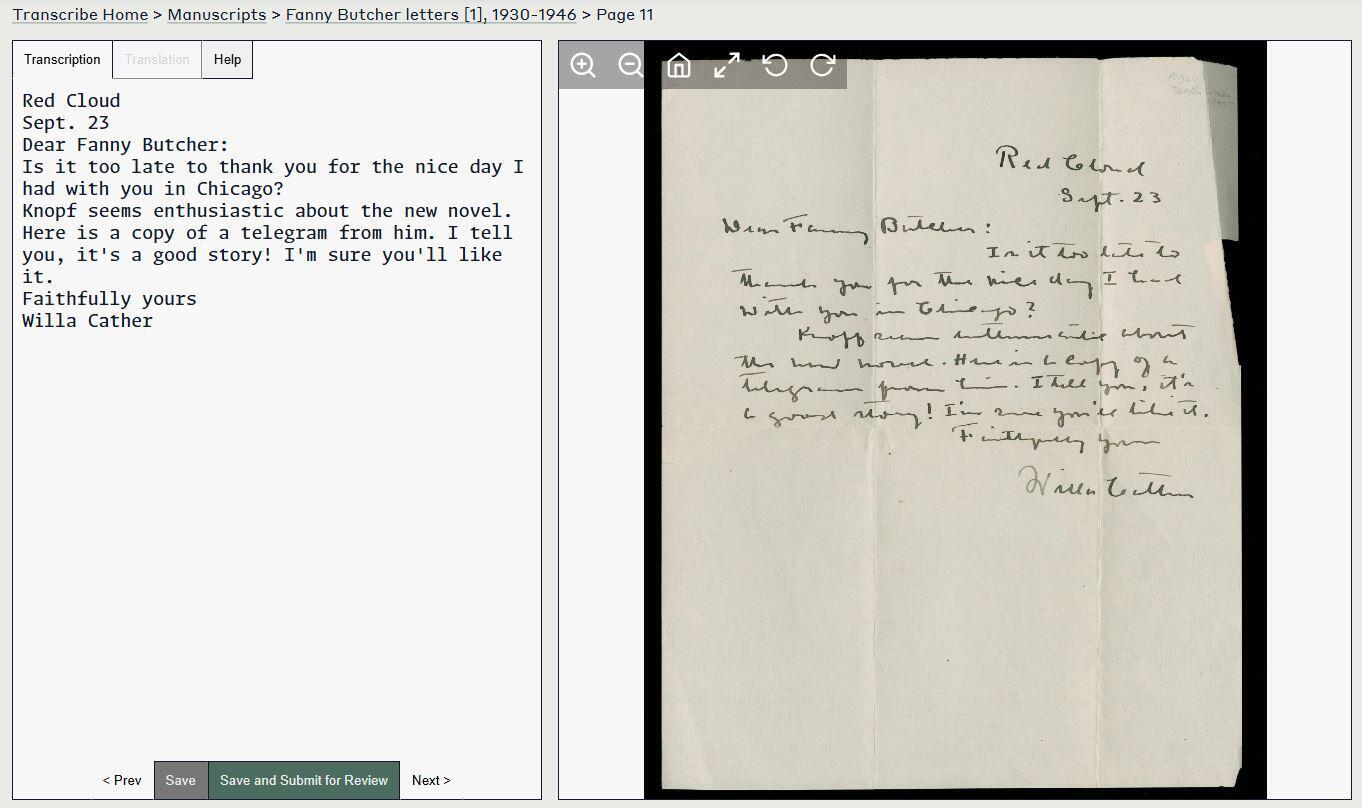 Transcribe Home > Manuscripts > Fanny Butcher letters [1], 1930-1946 > Page 11
Transcription
Translation
Help
Red Cloud
Sept. 23
Dear Fanny Butcher:
Is it too late to thank you for the nice day I
had with you in Chicago?
Knopf seems enthusiastic about the new novel.
Here is a copy of a telegram from him. I tell
you, it's a good story! I'm sure you'll like
it.
Faithfully yours
Willa Cather
< Prev
Save
Save and Submit for Review
Next >
Red Cloud
Sept. 23
Dear Fanny Butcher:
Is it too late to
thank you for the nice day I had
with you in Chicago?
Knopf seems enthusiastic about
the new novel. Here is a copy of a
telegram from him. I tell you, it's
a good story! I'm sure you'll like it.
Faithfully yours
Willa Cather